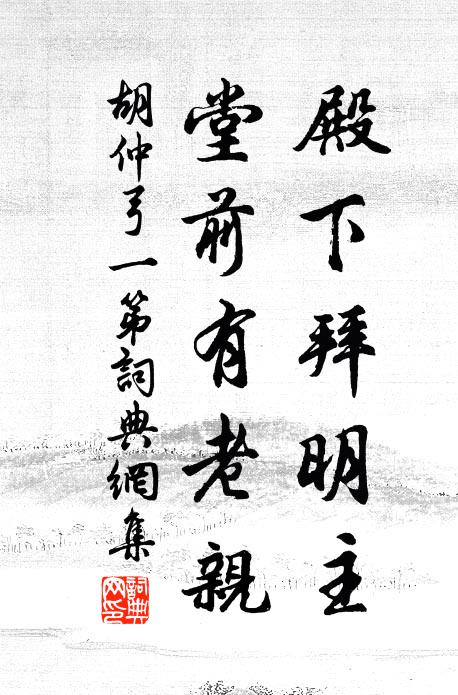 殿下拜明主
堂前有老親
胡仲弓一第詞典網集
詞典网印